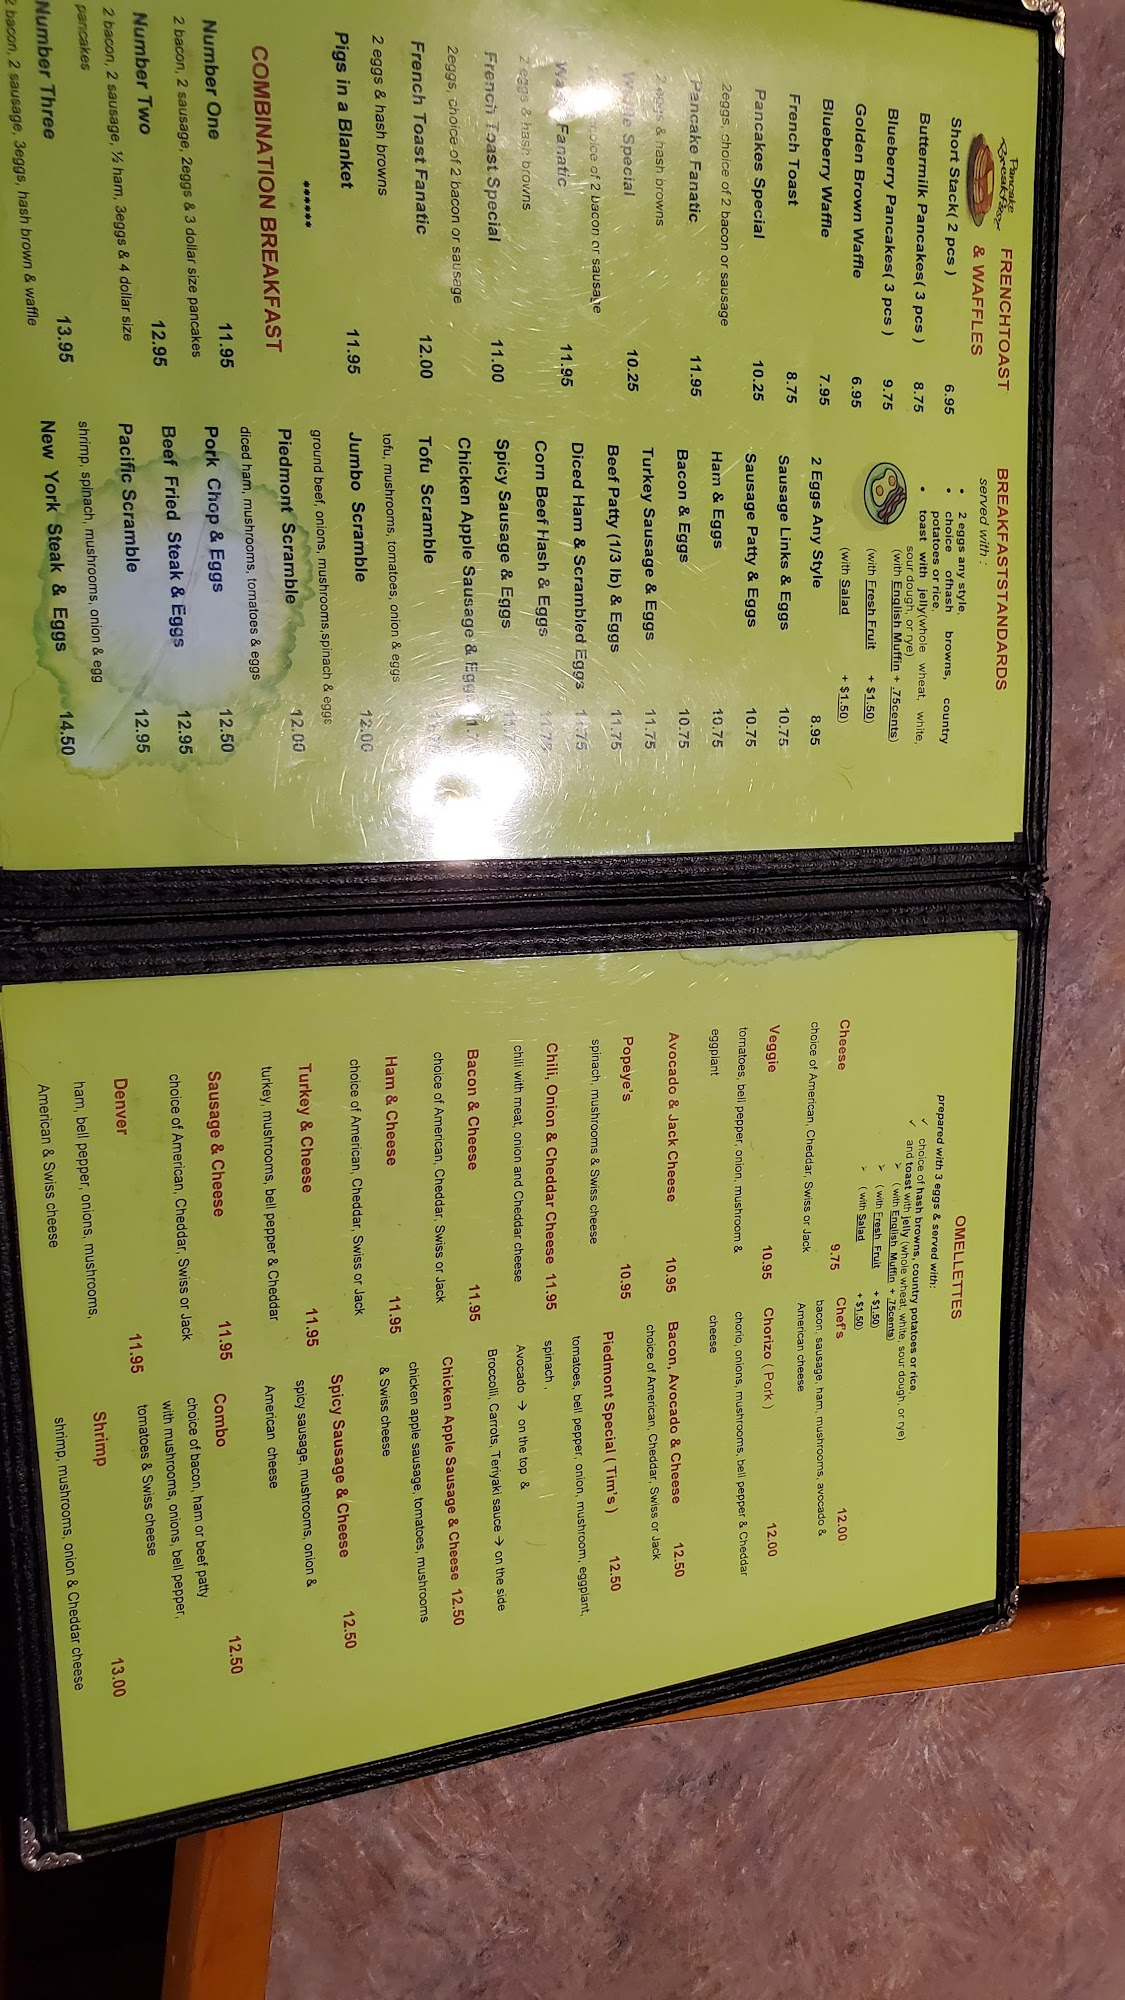 Pancake
Breakfast
FRENCHTOAST
& WAFFLES
Short Stack( 2 pcs ) 6.95
Buttermilk Pancakes( 3 pcs ) 8.75
Blueberry Pancakes( 3 pcs ) 9.75
Golden Brown Waffle 6.95
Blueberry Waffle 7.95
French Toast 8.75
Pancakes Special 10.25
2eggs, choice of 2 bacon or sausage
Pancake Fanatic 11.95
2 eggs & hash browns
Waffle Special 10.25
choice of 2 bacon or sausage
Fanatic 11.95
2 eggs & hash browns
French Toast Special 11.00
2eggs, choice of 2 bacon or sausage
French Toast Fanatic 12.00
2 eggs & hash browns
Pigs in a Blanket 11.95
******
COMBINATION BREAKFAST
Number One 11.95
2 bacon, 2 sausage, 2eggs & 3 dollar size pancakes
Number Two 12.95
2 bacon, 2 sausage, ½ ham, 3eggs & 4 dollar size
pancakes
Number Three 13.95
2 bacon, 2 sausage, 3eggs, hash brown & waffle
BREAKFASTSTANDARDS
served with :
• 2 eggs any style,
• choice ofhash browns, country
potatoes or rice,
• toast with jelly(whole wheat, white,
sour dough, or rye)
(with English Muffin + .75cents)
(with Fresh Fruit + $1.50)
(with Salad + $1.50)
2 Eggs Any Style 8.95
Sausage Links & Eggs 10.75
Sausage Patty & Eggs 10.75
Ham & Eggs 10.75
Bacon & Eggs 10.75
Turkey Sausage & Eggs 11.75
Beef Patty (1/3 lb) & Eggs 11.75
Diced Ham & Scrambled Eggs 11.75
Corn Beef Hash & Eggs 11.75
Spicy Sausage & Eggs
Chicken Apple Sausage & Eggs
Tofu Scramble
tofu, mushrooms, tomatoes, onion & eggs
Jumbo Scramble 12.00
ground beef, onions, mushrooms,spinach & eggs
Piedmont Scramble 12.00
diced ham, mushrooms, tomatoes & eggs
Pork Chop & Eggs 12.50
Beef Fried Steak & Eggs 12.95
Pacific Scramble 12.95
shrimp, spinach, mushrooms, onion & egg
New York Steak & Eggs 14.50
OMELLETTES
prepared with 3 eggs & served with:
✓ choice of hash browns, country potatoes or rice,
✓ and toast with jelly (whole wheat, white, sour dough, or rye)
➢ ( with English Muffin + .75cents)
➢ ( with Fresh Fruit + $1.50)
➢ ( with Salad + $1.50)
Cheese 9.75
choice of American, Cheddar, Swiss or Jack
Veggie 10.95
tomatoes, bell pepper, onion, mushroom &
eggplant
Avocado & Jack Cheese 10.95
Popeye's 10.95
spinach, mushrooms & Swiss cheese
Chili, Onion & Cheddar Cheese 11.95
chili with meat, onion and Cheddar cheese
Bacon & Cheese 11.95
choice of American, Cheddar, Swiss or Jack
Ham & Cheese 11.95
choice of American, Cheddar, Swiss or Jack
Turkey & Cheese 11.95
turkey, mushrooms, bell pepper & Cheddar
Sausage & Cheese 11.95
choice of American, Cheddar, Swiss or Jack
Denver 11.95
ham, bell pepper, onions, mushrooms,
American & Swiss cheese
Chef's 12.00
bacon, sausage, ham, mushrooms, avocado &
American cheese
Chorizo ( Pork ) 12.00
chorio, onions, mushrooms, bell pepper & Cheddar
cheese
Bacon, Avocado & Cheese 12.50
choice of American, Cheddar, Swiss or Jack
Piedmont Special ( Tim's ) 12.50
tomatoes, bell pepper, onion, mushroom, eggplant,
spinach ,
Avocado → on the top &
Broccolli, Carrots, Teriyaki sauce → on the side
Chicken Apple Sausage & Cheese 12.50
chicken apple sausage, tomatoes, mushrooms
& Swiss cheese
Spicy Sausage & Cheese 12.50
spicy sausage, mushrooms, onion &
American cheese
Combo 12.50
choice of bacon, ham or beef patty
with mushrooms, onions, bell pepper,
tomatoes & Swiss cheese
Shrimp 13.00
shrimp, mushrooms, onion & Cheddar cheese